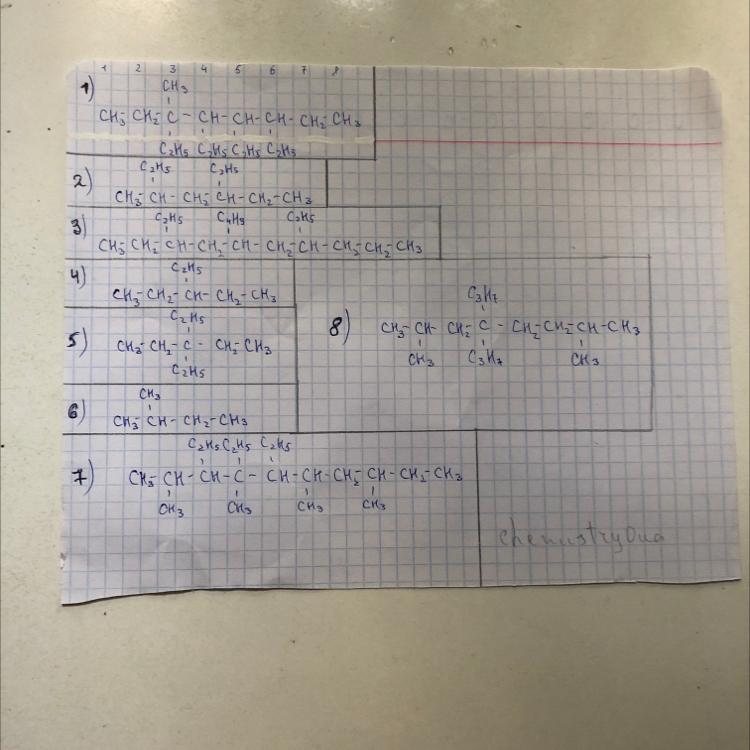 1 2 3 4 5 6 7 8
CH₃
1) CH₃-CH₂-C-CH-CH-CH-CH₂-CH₃
C₂H₅ C₂H₅ C₂H₅ C₂H₅
C₂H₅ C₂H₅
2) CH₃-CH-CH₂-CH-CH₂-CH₃
C₂H₅ C₄H₉ C₂H₅
3) CH₃-CH₂-CH-CH₂-CH-CH₂-CH-CH₂-CH₂-CH₃
C₂H₅
4) CH₃-CH₂-CH-CH₂-CH₃
C₂H₅
5) CH₃-CH₂-C-CH₂-CH₃
C₂H₅
C₃H₇
8) CH₃-CH-CH₂-C-CH₂-CH₂-CH-CH₃
CH₃ C₃H₇ CH₃
CH₃
6) CH₃-CH-CH₂-CH₃
C₂H₅ C₂H₅ C₂H₅
7) CH₃-CH-CH-C-CH-CH-CH₂-CH-CH₂-CH₃
CH₃ CH₃ CH₃ CH₃
chemistryOua